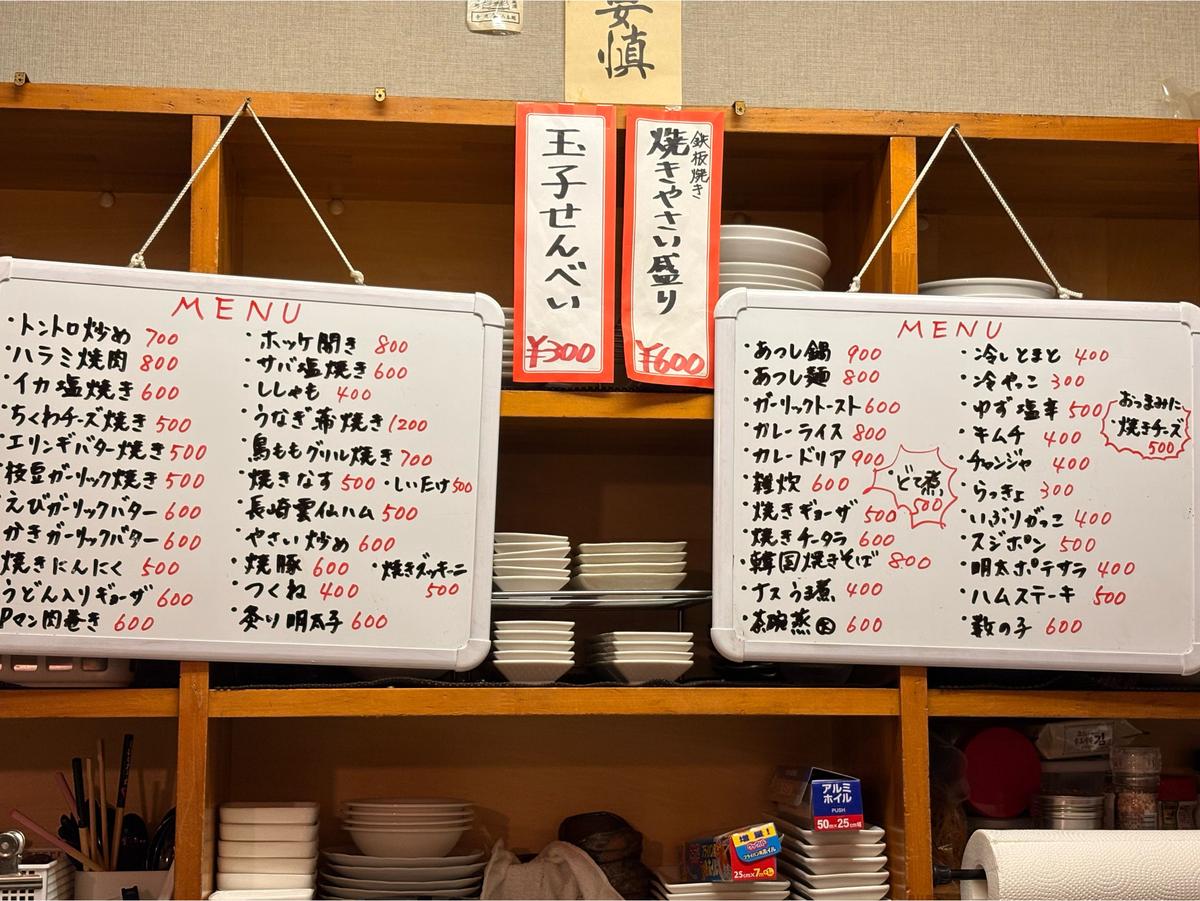 慎
玉子せんべい
¥300
鉄板焼き
焼きやさい盛り
¥600
MENU
・トントロ炒め 700
・ハラミ焼肉 800
・イカ塩焼き 600
・ちくわチーズ焼き 500
・エリンギバター焼き 500
・枝豆ガーリック焼き 500
・えびガーリックバター 600
・かきガーリックバター 600
・焼きにんにく 500
うどん入りギョーザ 600
Pマン肉巻き 600
・ホッケ開き 800
・サバ塩焼き 600
・ししゃも 400
・うなぎ蒲焼き 1200
・鳥ももグリル焼き 700
・焼きなす 500 ・しいたけ 500
・長崎雲仙ハム 500
・やさい炒め 600
・焼豚 600 ・焼きズッキーニ 500
・つくね 400
・炙り明太子 600
MENU
・あつし鍋 900
・あつし麺 800
・ガーリックトースト 600
・カレーライス 800
・カレードリア 900
・雑炊 600
・どて煮 500
・焼きギョーザ 500
・焼きチータラ 600
・韓国焼きそば 800
・ナスうま煮 400
・茶碗蒸 600
・冷しとまと 400
・冷やっこ 300
・ゆず塩辛 500
・キムチ 400
・チャンジャ 400
・らっきょ 300
・いぶりがっこ 400
・スジポン 500
・明太ポテサラ 400
・ハムステーキ 500
・数の子 600
おつまみに
・焼きチーズ
500
アルミ
ホイル
PUSH
50m×25cm
増量!
フライパン用ホイル
25cm×7m